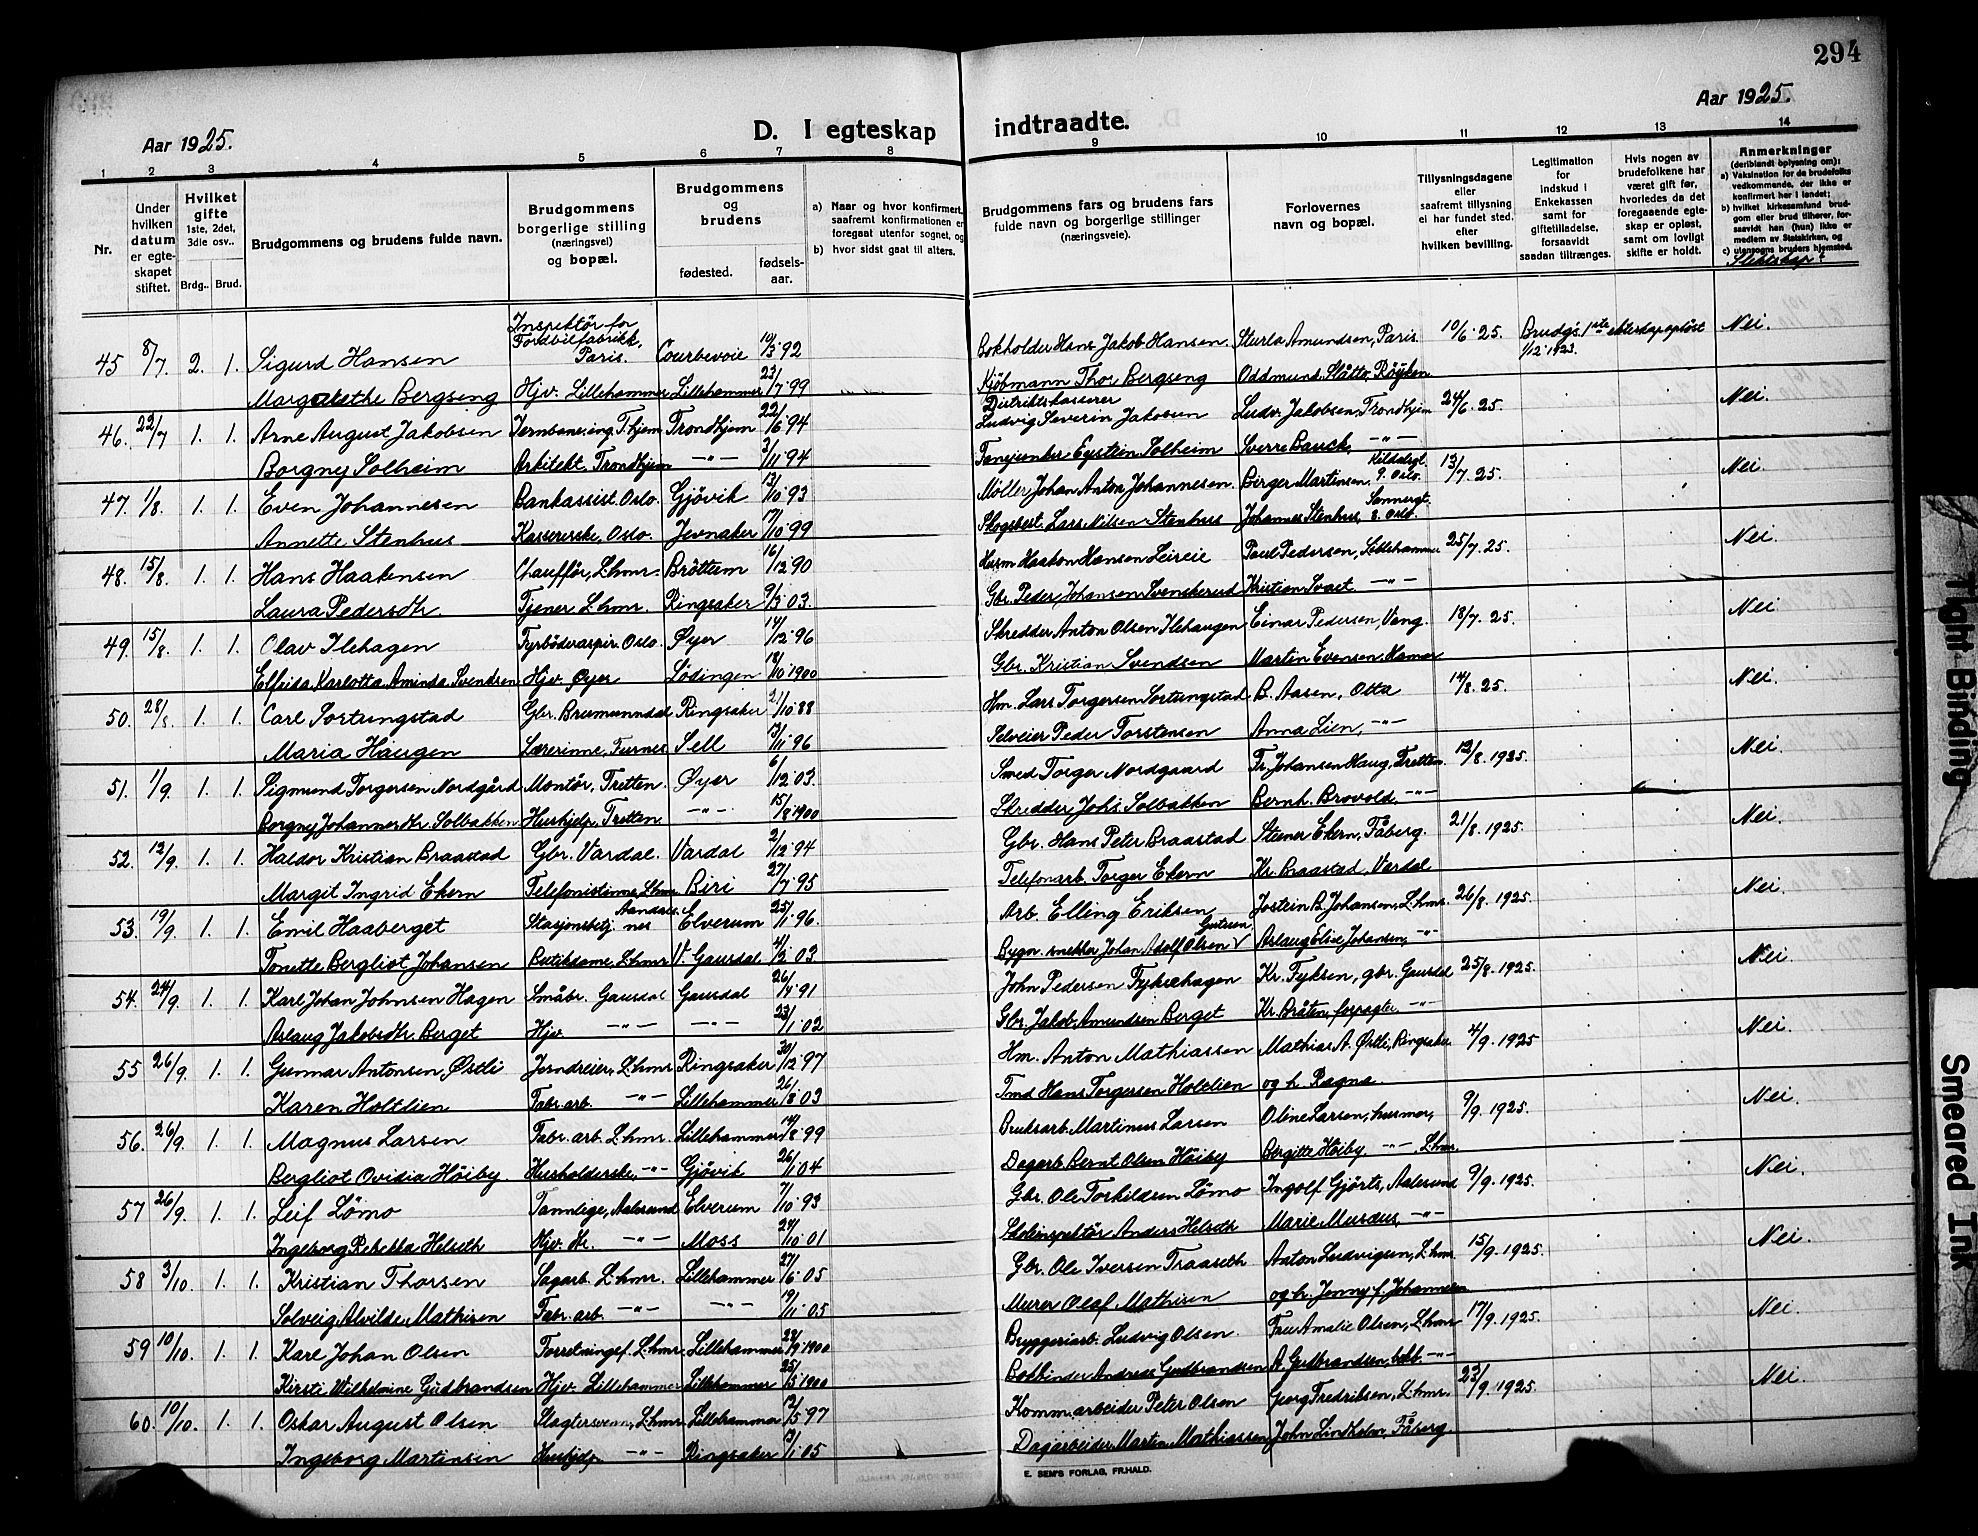 294
Aar 1925.
Aar 1925.
D. I egteskap indtraadte.
1 2 3 4 5 6 7 8 9 10 11 12 13 14
Nr.
Under hvilken datum er egteskapet stiftet.
Hvilket gifte 1ste, 2det, 3die osv..
Brdg.. Brud.
Brudgommens og brudens fulde navn.
Brudgommens borgerlige stilling (næringsvei) og bopæl.
Brudgommens og brudens
fødested.
fødselsaar.
a) Naar og hvor konfirmert, saafremt konfirmationen er foregaat utenfor sognet, og
b) hvor sidst gaat til alters.
Brudgommens fars og brudens fars fulde navn og borgerlige stillinger (næringsveie).
Forlovernes navn og bopæl.
Tillysningsdagene eller saafremt tillysning ei har fundet sted. efter hvilken bevilling.
Legitimation for indskud i Enkekassen samt for giftetilladelse, forsaavidt saadan tiltrænges.
Hvis nogen av brudefolkene har været gift før, hvorledes da det foregaaende egteskap er opløst, samt om lovligt skifte er holdt.
Anmerkninger (deriblandt oplysning om):
a) Vaksination for de brudefolks vedkommende, der ikke er konfirmert her i landet;
b) hvilket kirkesamfund brudgom eller brud tilhører, forsaavidt han (hun) ikke er medlem av Statskirken, og
c) utensogns bruders hjemsted.
Slektskap?
45 8/7. 2. 1. Sigurd Hansen Inspektör for Fordbilfabrikk, Paris. Courbevoie 10/3 92 Bokholder Hans Jakob Hansen. Sturla Amundsen, Paris. 10/6. 25. Brudg's 1ste ekteskap opløst 1/12 1923. Nei.
Margarethe Bergseng Hjv. Lillehammer Lillehammer 23/7 99 Kjöbmann Thor Bergseng Oddmund Slåtto, Röyken
46. 22/7 1. 1. Arne August Jakobsen Jernbane.ing. T.hjem Trondhjem 22/6 94 Distriktskasserer Ludvig Severin Jakobsen Ludv. Jakobsen, Trondhjem 24/6. 25. Nei.
Borgny Solheim Arkitekt, Trondhjem —"— 3/11 94 Fanejunker Eystein Solheim Sverre Bauck, —"—
47. 1/8. 1. 1. Even Johannesen Bankassist. Oslo. Gjövik 13/10 93 Möller Johan Anton Johannesen. Birger Martinsen, Oslo. 13/7. 25. Nei.
Annette Stenhus Kassererske, Oslo. Jevnaker 17/10 99 Skogsbest. Lars Nilsen Stenhus Johannes Stenhus, Oslo.
48. 15/8. 1. 1. Hans Haakensen Chaufför, L.hmr. Bröttum 16/12 90 Husm Haakon Hansen Leireie Paul Pedersen, Lillehammer 25/7. 25. Nei.
Laura Pedersdtr. Tjener L.hmr. Ringsaker 9/3 03. Gbr. Peder Johansen Svenskerud Kristian Svaet —"—
49. 15/8. 1. 1. Olav Ilehagen Fyrböderaspir. Oslo. Øyer 14/12 96 Skredder Anton Olsen Ilehaugen Einar Pedersen, Vang. 18/7. 25. Nei
Elfeida Karlotta Aminda Svendsen Hjv. Øyer Lödingen 18/10 1900 Gbr. Kristian Svendsen Martin Evensen, Hamar
50. 28/8 1. 1. Carl Sortungstad Gbr. Brumunndal Ringsaker 21/10 88 Hm. Lars Torgersen Sortungstad B. Aasen, Otta 14/8. 25. Nei.
Maria Haugen Lærerinne, Furnes Sell 13/11 96 Selveier Peder Torstensen Anna Lien, —"—
51. 1/9. 1. 1. Sigmund Torgersen Nordgård Montör, Tretten. Øyer 6/12 03. Smed Torger Nordgaard Fr. Johansen Haug, Tretten 13/8. 1925. Nei.
Borgny Johannesdtr. Solbakken Hushjelp, Tretten —"— 15/8 1900 Skredder Johs. Solbakken Bernh. Brovold, —"—
52. 12/9. 1. 1. Haldor Kristian Braastad Gbr. Vardal. Vardal 2/12 94 Gbr. Hans Peter Braastad Steener Ekern, Fåberg. 21/8. 1925. Nei.
Margit Ingrid Ekern Telefonistinne, L.hmr. Biri 27/7 95 Telefonarb. Torger Ekern Kr. Braastad, Vardal
53. 19/9. 1. 1. Emil Haaberget Stasjonsbetj. Aandalsnes Elverum 25/1 96. Arb. Elling Eriksen Jostein B. Johansen, L.hmr. 26/8. 1925. Nei.
Tonette Bergliot Johansen Butikdame, L.hmr. V. Gausdal 4/2 03 Bygn. snekker Johan Adolf Olsen Aslaug Elise Johansen, —"—
54. 24/9. 1. 1. Karl Johan Johnsen Hagen Småbr. Gausdal Gausdal 26/4 91 John Pedersen Fyksehagen Kr. Fyksen, gbr. Gausdal 25/8. 1925. Nei.
Aslaug Jakobsdtr. Berget Hjv. —"— —"— 23/1 02 Gbr. Jakob Amundsen Berget Kr. Bråten, forpagter —"—
55 26/9. 1. 1. Gunnar Antonsen, Østli Jerndreier, L.hmr Ringsaker 30/12 97 Hm. Anton Mathiassen Mathias A. Østli, Ringsaker 4/9. 1925 Nei.
Karen Holtlien Fabr. arb. —"— Lillehammer 26/8 03 Tmd Hans Torgersen Holtlien og h. Ragna.
56. 26/9. 1. 1. Magnus Larsen Fabr. arb. L.hmr. Lillehammer 14/8 99 Bruksarb. Martinus Larsen Oline Larsen, husmor, 9/9. 1925. Nei.
Bergliot Ovidia Höiby. Husholderske, —"— Gjövik 26/1 04 Dagarb. Bernt Olsen Höiby Bergitte Höiby —"— L.hmr.
57 26/9. 1. 1. Leif Lömo Tannlege, Aalesund Elverum 7/10 93 Gbr. Ole Torkildsen Lömo Ingolf Gjörts, Aalesund 9/9. 1925. Nei.
Ingeborg Rebekka Helseth Hjv. hr. —"— Moss 24/10 01 Skoleinspektör Anders Helseth Marie Musdus, —"—
58 3/10. 1. 1. Kristian Thorsen Sagarb. L.hmr. Lillehammer 27/6 05 Gbr. Ole Iversen Traaseth Anton Ludvigsen, L.hmr. 15/9. 1925. Nei.
Solveig Alvilde Mathisen Fabr. arb. —"— —"— 19/11 05 Murer Olaf Mathisen og h. Jenny f. Johannesen
59 10/10. 1. 1. Karl Johan Olsen Forretningsf. L.hmr. Lillehammer 28/9 1900 Bryggeriarb. Ludvig Olsen. Frue Amalie Olsen, L.hmr 17/9. 1925. Nei.
Kirsti Wilhelmine Gudbrandsen Hjv. Lillehammer Lillehammer 25/5 1900 Bokbinder Andreas Gudbrandsen A. Gudbrandsen, bokb. —"—
60 10/10. 1. 1. Oskar August Olsen Slagtersvenn, L.hmr. Lillehammer 12/5 97 Komm. arbeider Peter Olsen Georg Fredriksen, L.hmr. 23/9. 1925. Nei.
Ingeborg Martinsen Hushjelp —"— Ringsaker 13/1 05 Dagarbeider Martin Mathiassen John Lindholm, Fåberg.
E. SEM'S FORLAG, FR.HALD.
Tight Binding
Smeared Ink